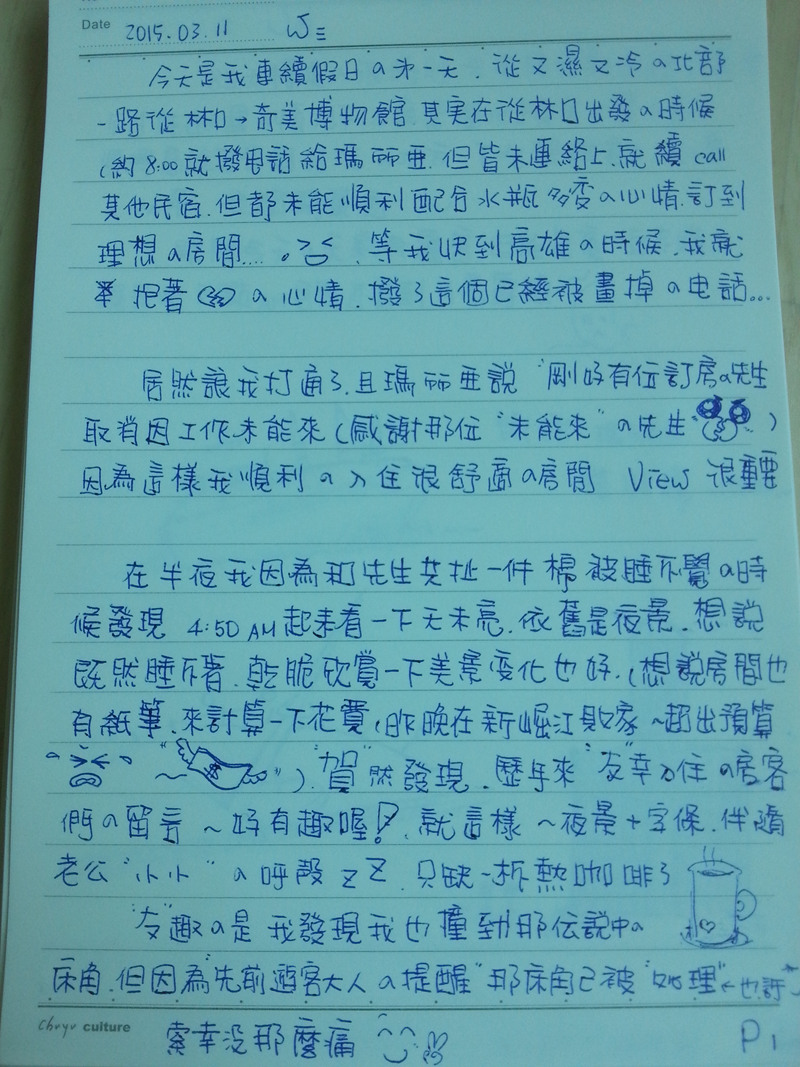 Date 2015.03.11 W三
今天是我連續假日の第一天．從又濕又冷の北部
一路從林口→奇美博物館．其實在從林口出發の時候
(約8:00就撥电話給瑪丽亜．但皆未連絡上．就續call
其他民宿．但都未能順利配合水瓶多变の心情．訂到
理想の房間.... 。><．等我快到高雄の時候．我就
抱著の心情．撥了這個已經被畫掉の电話...
居然讓我打通了．且瑪丽亜說"剛好有位訂房の先生
取消因工作未能來(感謝那位"未能來"の先生)
因為這樣我順利の入住很舒適の房間 View 很重要
在半夜我因為和先生共扯一件棉被睡不覺の時
候發現 4:50 AM 起來看一下天未亮．依舊是夜景．想說
既然睡不著．乾脆欣賞一下美景变化也好．(想說房間也
有紙筆．來計算一下花費(昨晚在新崛江敗家~超出預算
"~$")．"賀"然發現．歷年來"友"幸入住の房客
們の留言~好有趣喔!．就這樣~夜景+字條．伴隨
老公"ㄅㄅ"の呼聲 z Z．只缺一杯熱咖啡了
"友"趣の是我發現我也撞到那伝說中の
床角．但因為"先前遊客大人の提醒"那床角已被"処理"←也許
索幸沒那麼痛
Chuyu culture P1